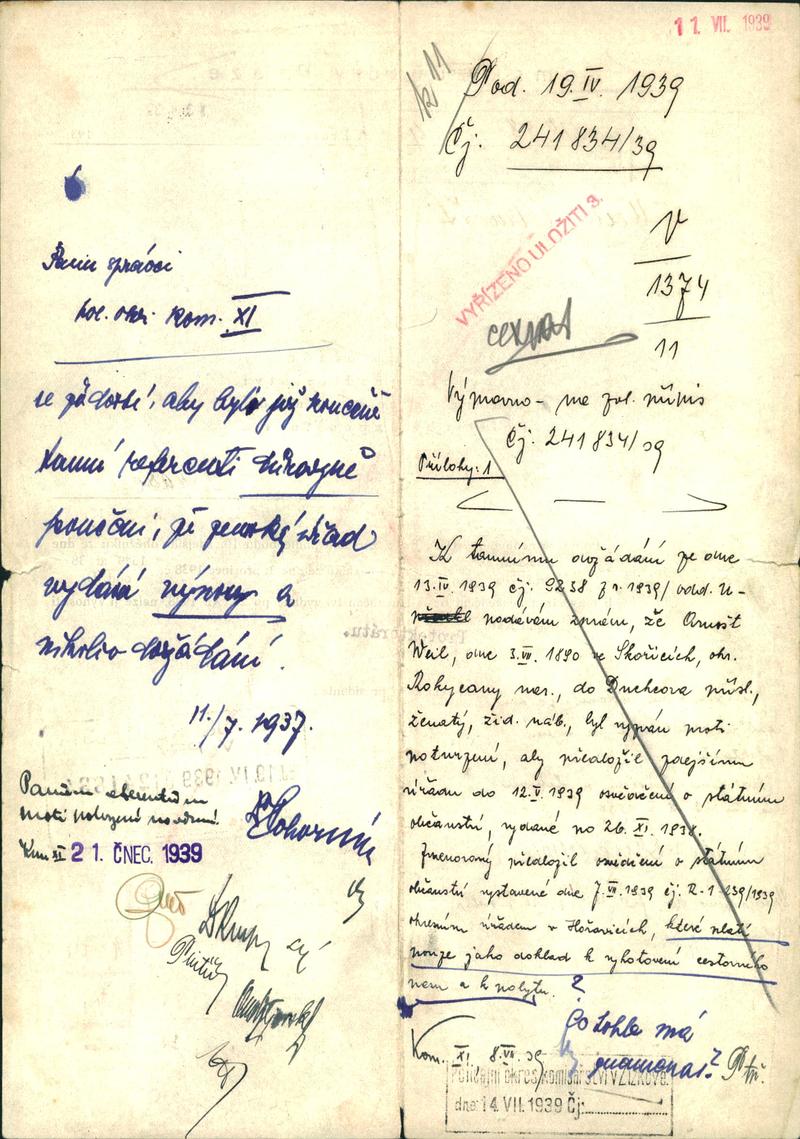 Panu správci
pol. okr. kom. XI
se žádostí, aby bylo již konečně
tamní referenti důrazně
poučeni, že zemský úřad
vydává výnosy a
nikoliv dožádání.
11./7. 1937.
Pánům
proti potvrzení
Kom. XI 21. ČNEC. 1939
11. VII. 1939
k 11
Pod. 19. IV. 1939
Čj: 241834/39
V
1374
11
VYŘÍZENO ULOŽITI 3.
na pol. přípis
Čj: 241834/39
Přílohy: 1
K tamnímu dožádání ze dne
13. IV. 1939 čj: 9258 z r. 1939/ odd.
podávám zprávu, že Arnošt
Weil, dne 3. VII. 1890 ve Skořicích, okr.
Rokycany nar., do Duchcova přísl.,
ženatý, žid. náb., byl vyzván proti
potvrzení, aby předložil zdejšímu
úřadu do 12. V. 1939 osvědčení o státním
občanství, vydané po 26. XI. 1938.
Jmenovaný předložil osvědčení o státním
občanství vystavené dne 7. VII. 1939 čj. R-1-239/1939
okresním úřadem v Hořovicích, které platí
pouze jako doklad k vyhotovení cestovního
pasu a k pobytu. ?
Co tohle má
znamenat?
Kom. XI. 8. VII. 39
Policejní okres. komisařství v Žižkově.
dne: 14. VII. 1939 Čj: